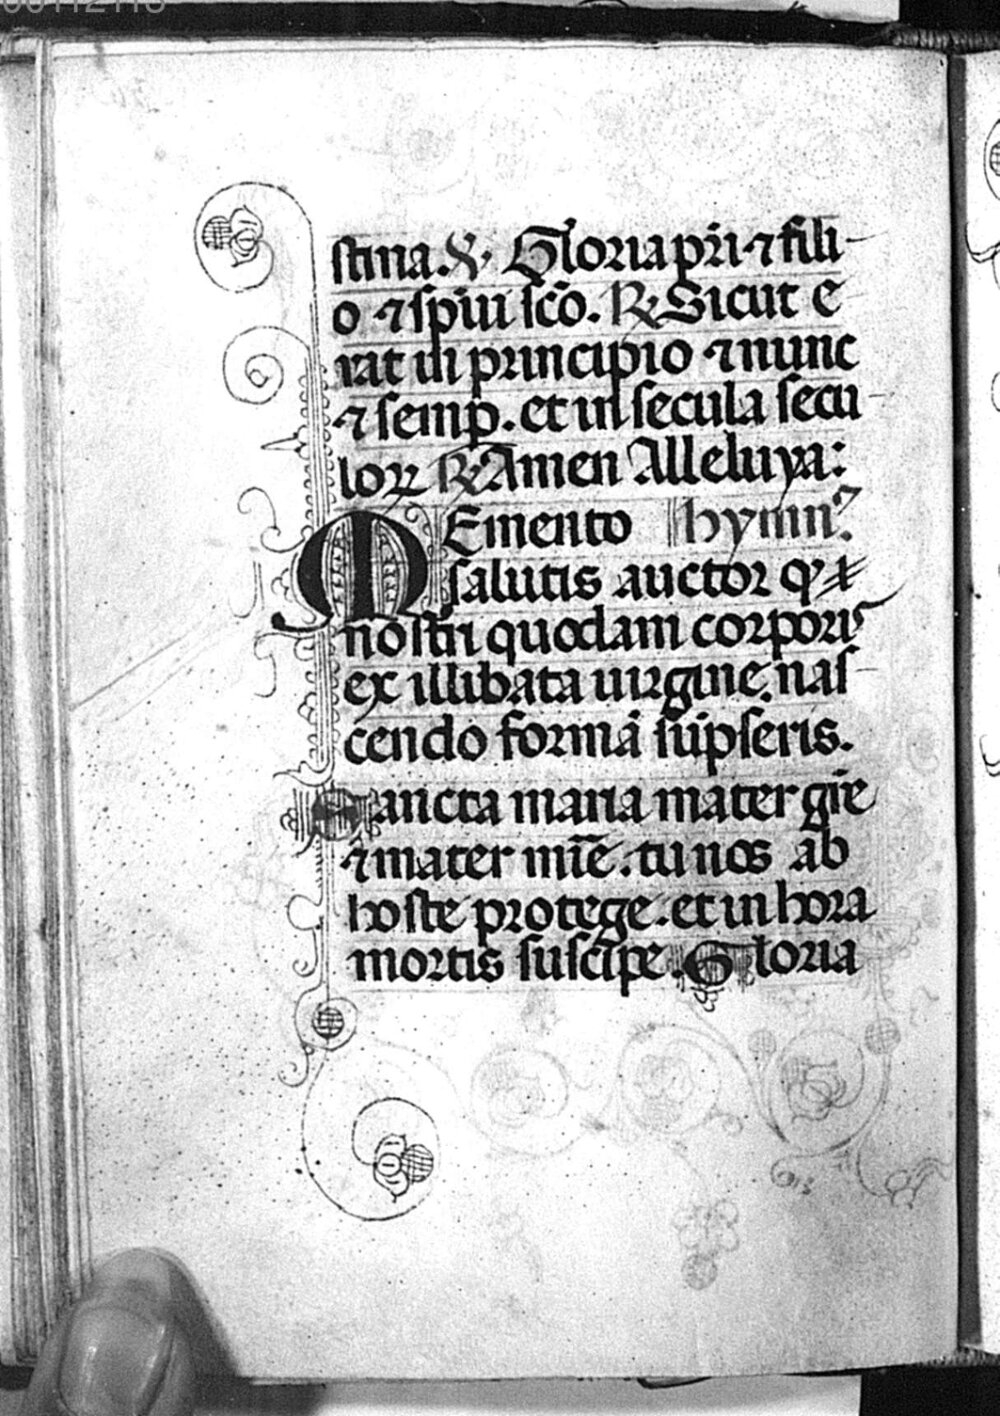 stina. ℣ Gloria pr̄i ⁊ fili
o ⁊ sp̄iui sc̄o. ℟ Sicut e
rat in principio ⁊ nunc
⁊ semꝑ. et in secula secu
loꝝ ℟ Amen Alleluya:
Memento hymnꝰ.
salutis auctor ꝙ
nostri quodam corporis
ex illibata uirgine. nas
cendo formā sūpseris.
Sancta maria mater grē
⁊ mater mīe. tu nos ab
hoste protege. et in hora
mortis suscipe. Gloria